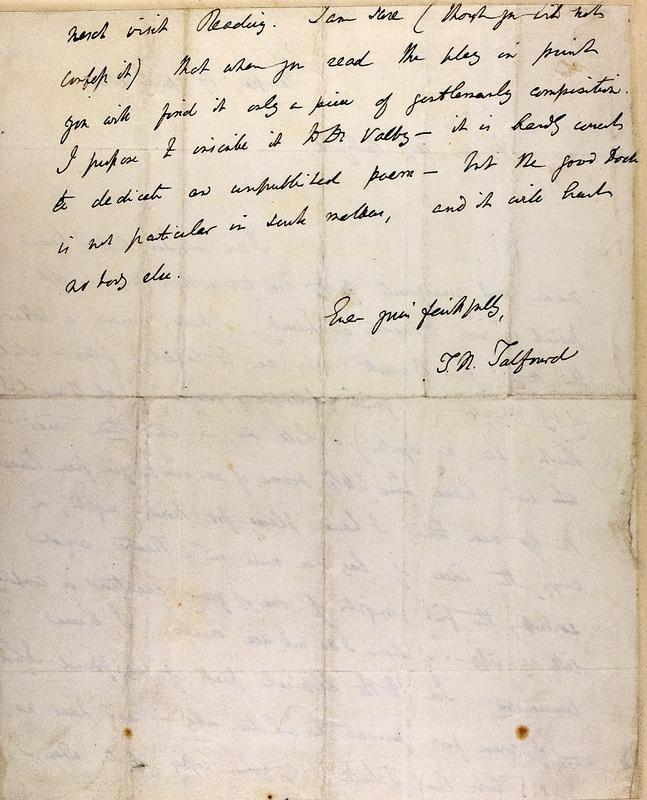 next visit Reading. I am sure (though you will not
confess it) that when you read the play in print
you will find it only a piece of gentlemanly composition.
I propose to inscribe it to Dr Valpy — it is hardly correct
to dedicate an unpublished poem — but the good Doctr
is not particular in such matters, and it will hurt
nobody else.
Ever yours faithfully,
T. N. Talfourd